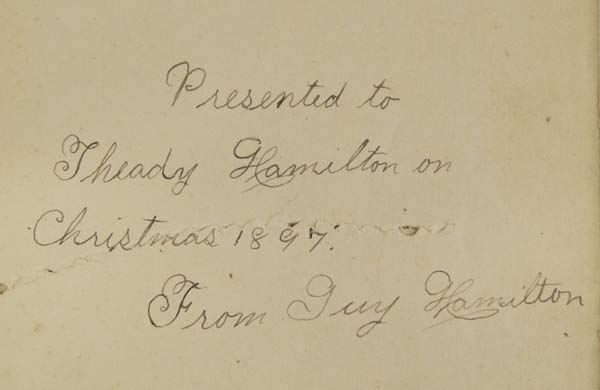 Presented to
Theady Hamilton on
Christmas 1897.
From Guy Hamilton